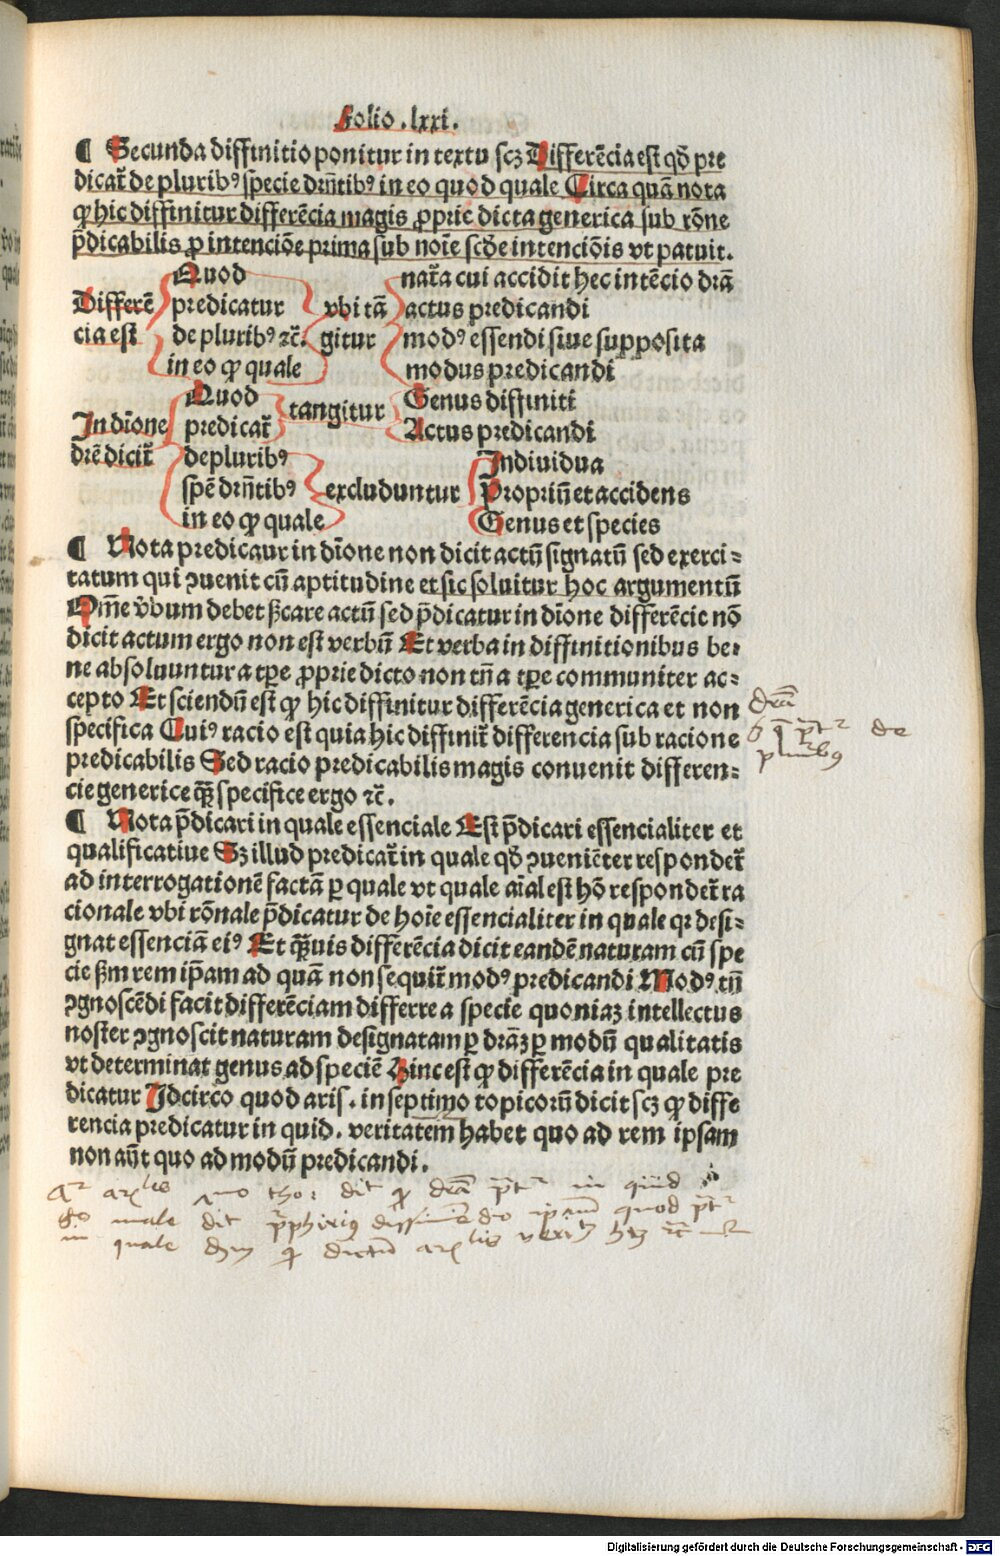 Folio .lxxi.
¶ Secunda diffinitio ponitur in textu scꝫ Differēcia est qđ pre
dicat᷑ de pluribꝰ specie drn̄tibꝰ in eo quod quale Circa quā nota
ꝙ hic diffinitur differēcia magis ꝓprie dicta generica sub rōne
p̄dicabilis ꝓ intenciōe prima sub noīe scđe intenciōis vt patuit.
Quod
predicatur
de pluribꝰ ⁊c̄.
in eo ꝙ quale
Differē
cia est
vbi tā
gitur
nat᷑a cui accidit hec intēcio drā
actus predicandi
modꝰ essendi siue supposita
modus predicandi
In dīone
drē dicit᷑
Quod
predicat᷑
de pluribꝰ
spē drn̄tibꝰ
in eo ꝙ quale
tangitur
Genus diffiniti
Actus predicandi
excluduntur
Indiuidua
Propriū et accidens
Genus et species
¶ Nota predicaur in dīone non dicit actū signatū sed exerci⸗
tatum qui ꝯuenit cū aptitudine et sic soluitur hoc argumentū
Om̄e v̄bum debet ẞcare actū sed p̄dicatur in dīone differēcie nō
dicit actum ergo non est verbū Et verba in diffinitionibus be⸗
ne absoluuntur a tꝑe ꝓprie dicto non tn̄ a tꝑe communiter ac⸗
cepto Et sciendū est ꝙ hic diffinitur differēcia generica et non
specifica Cuiꝰ racio est quia hic diffinit᷑ differencia sub racione
predicabilis Sed racio predicabilis magis conuenit differen⸗
cie generice qꝫ̄ specifice ergo ⁊c̄.
drā
pluribꝰ
de
¶ Nota p̄dicari in quale essenciale Est p̄dicari essencialiter et
qualificatiue Sꝫ illud predicat᷑ in quale qđ ꝯueniēter respondet᷑
ad interrogationē factā ꝑ quale vt quale aīal est hō respondet᷑ ra
cionale vbi rōnale p̄dicatur de hoīe essencialiter in quale qꝛ desi⸗
gnat essenciā eiꝰ Et qꝫ̄uis differēcia dicit eandē naturam cū spe
cie ẞm rem ip̄am ad quā non sequit᷑ modꝰ predicandi Modꝰ tn̄
ꝯgnoscēdi facit differēciam differre a specie quoniaꝫ intellectus
noster ꝯgnoscit naturam designatam ꝑ drāꝫ ꝑ modū qualitatis
vt determinat genus ad speciē Hinc est ꝙ differēcia in quale pre
dicatur Idcirco quod aris. in septimo topicorū dicit scꝫ ꝙ diffe
rencia predicatur in quid. veritatem habet quo ad rem ipsam
non aūt quo ad modū predicandi.
dit ꝙ drā in quid
male dit quod
in quale ꝙ dictū
Digitalisierung gefördert durch die Deutsche Forschungsgemeinschaft - DFG